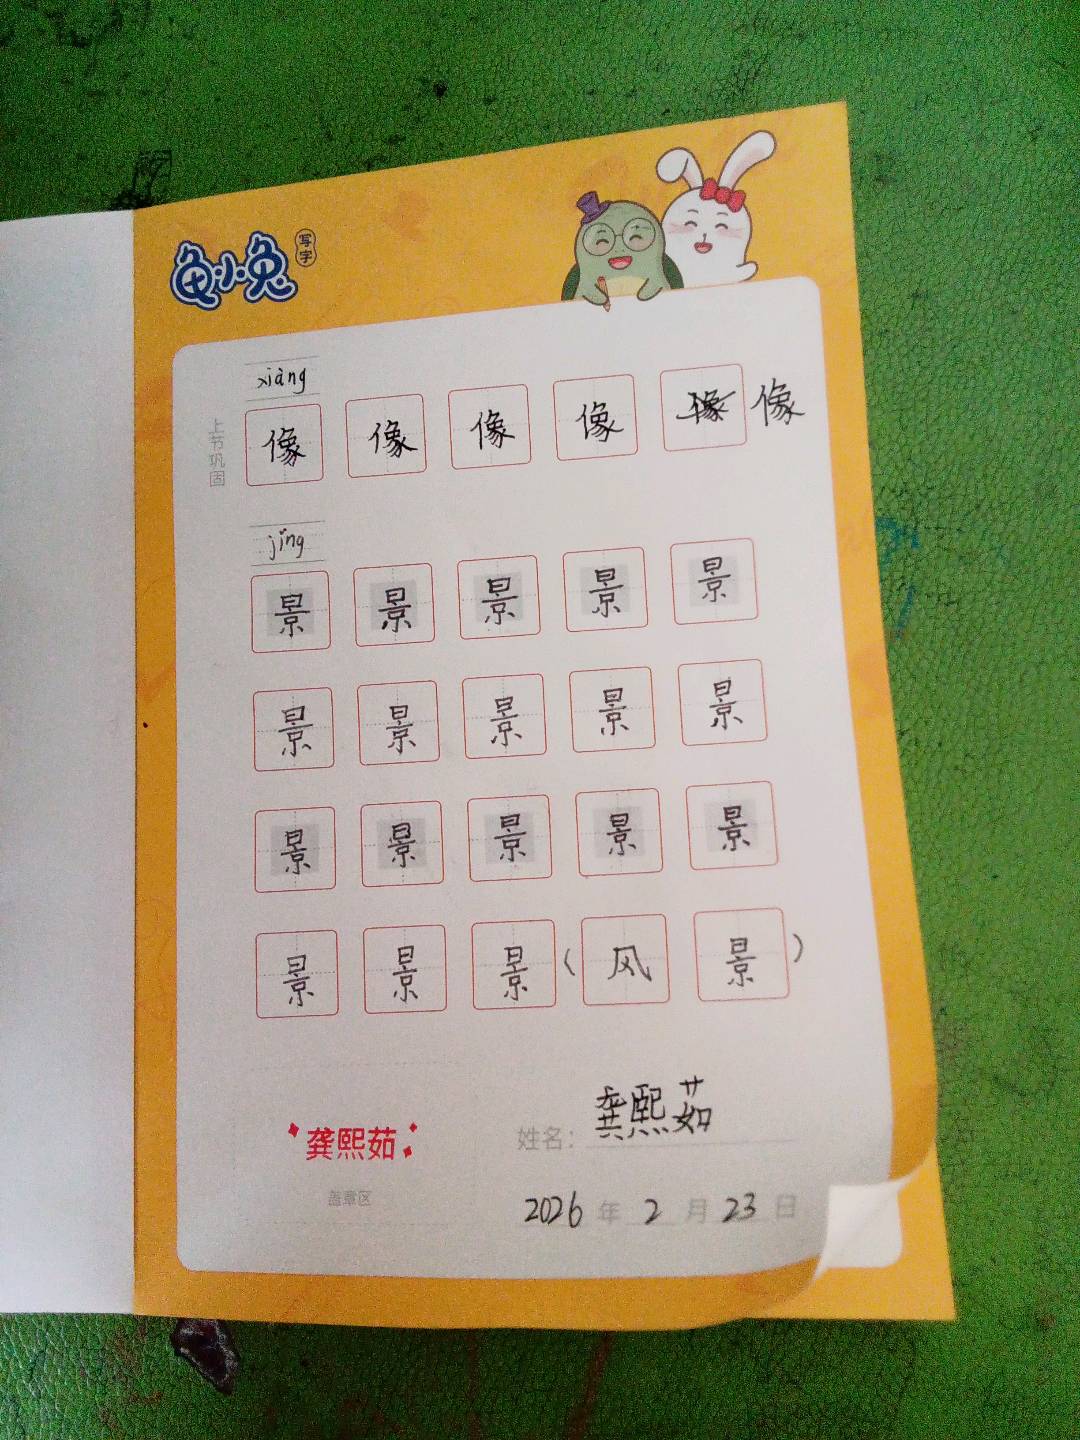 龟小兔 写字
xiàng
上节巩固
像 像 像 像 像 像
jǐng
景 景 景 景 景
景 景 景 景 景
景 景 景 景 景
景 景 景 ( 风 景 )
龚熙茹
盖章区
姓名: 龚熙茹
2026 年 2 月 23 日